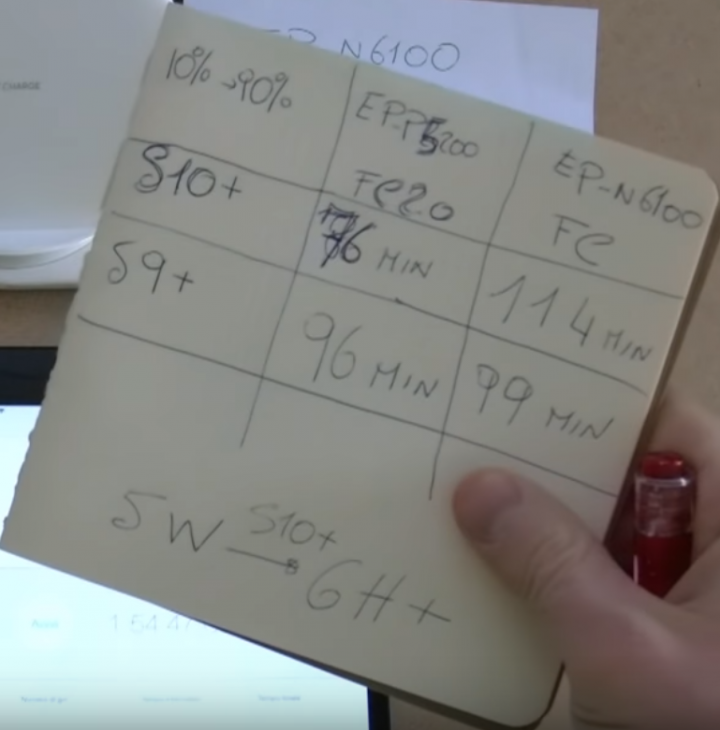 CHARGE
EP-N6100
10% →90%
EP-P5200
FC2.0
EP-N6100
FC
S10+
76 MIN
114 MIN
S9+
96 MIN
99 MIN
5W S10+ → 6H+